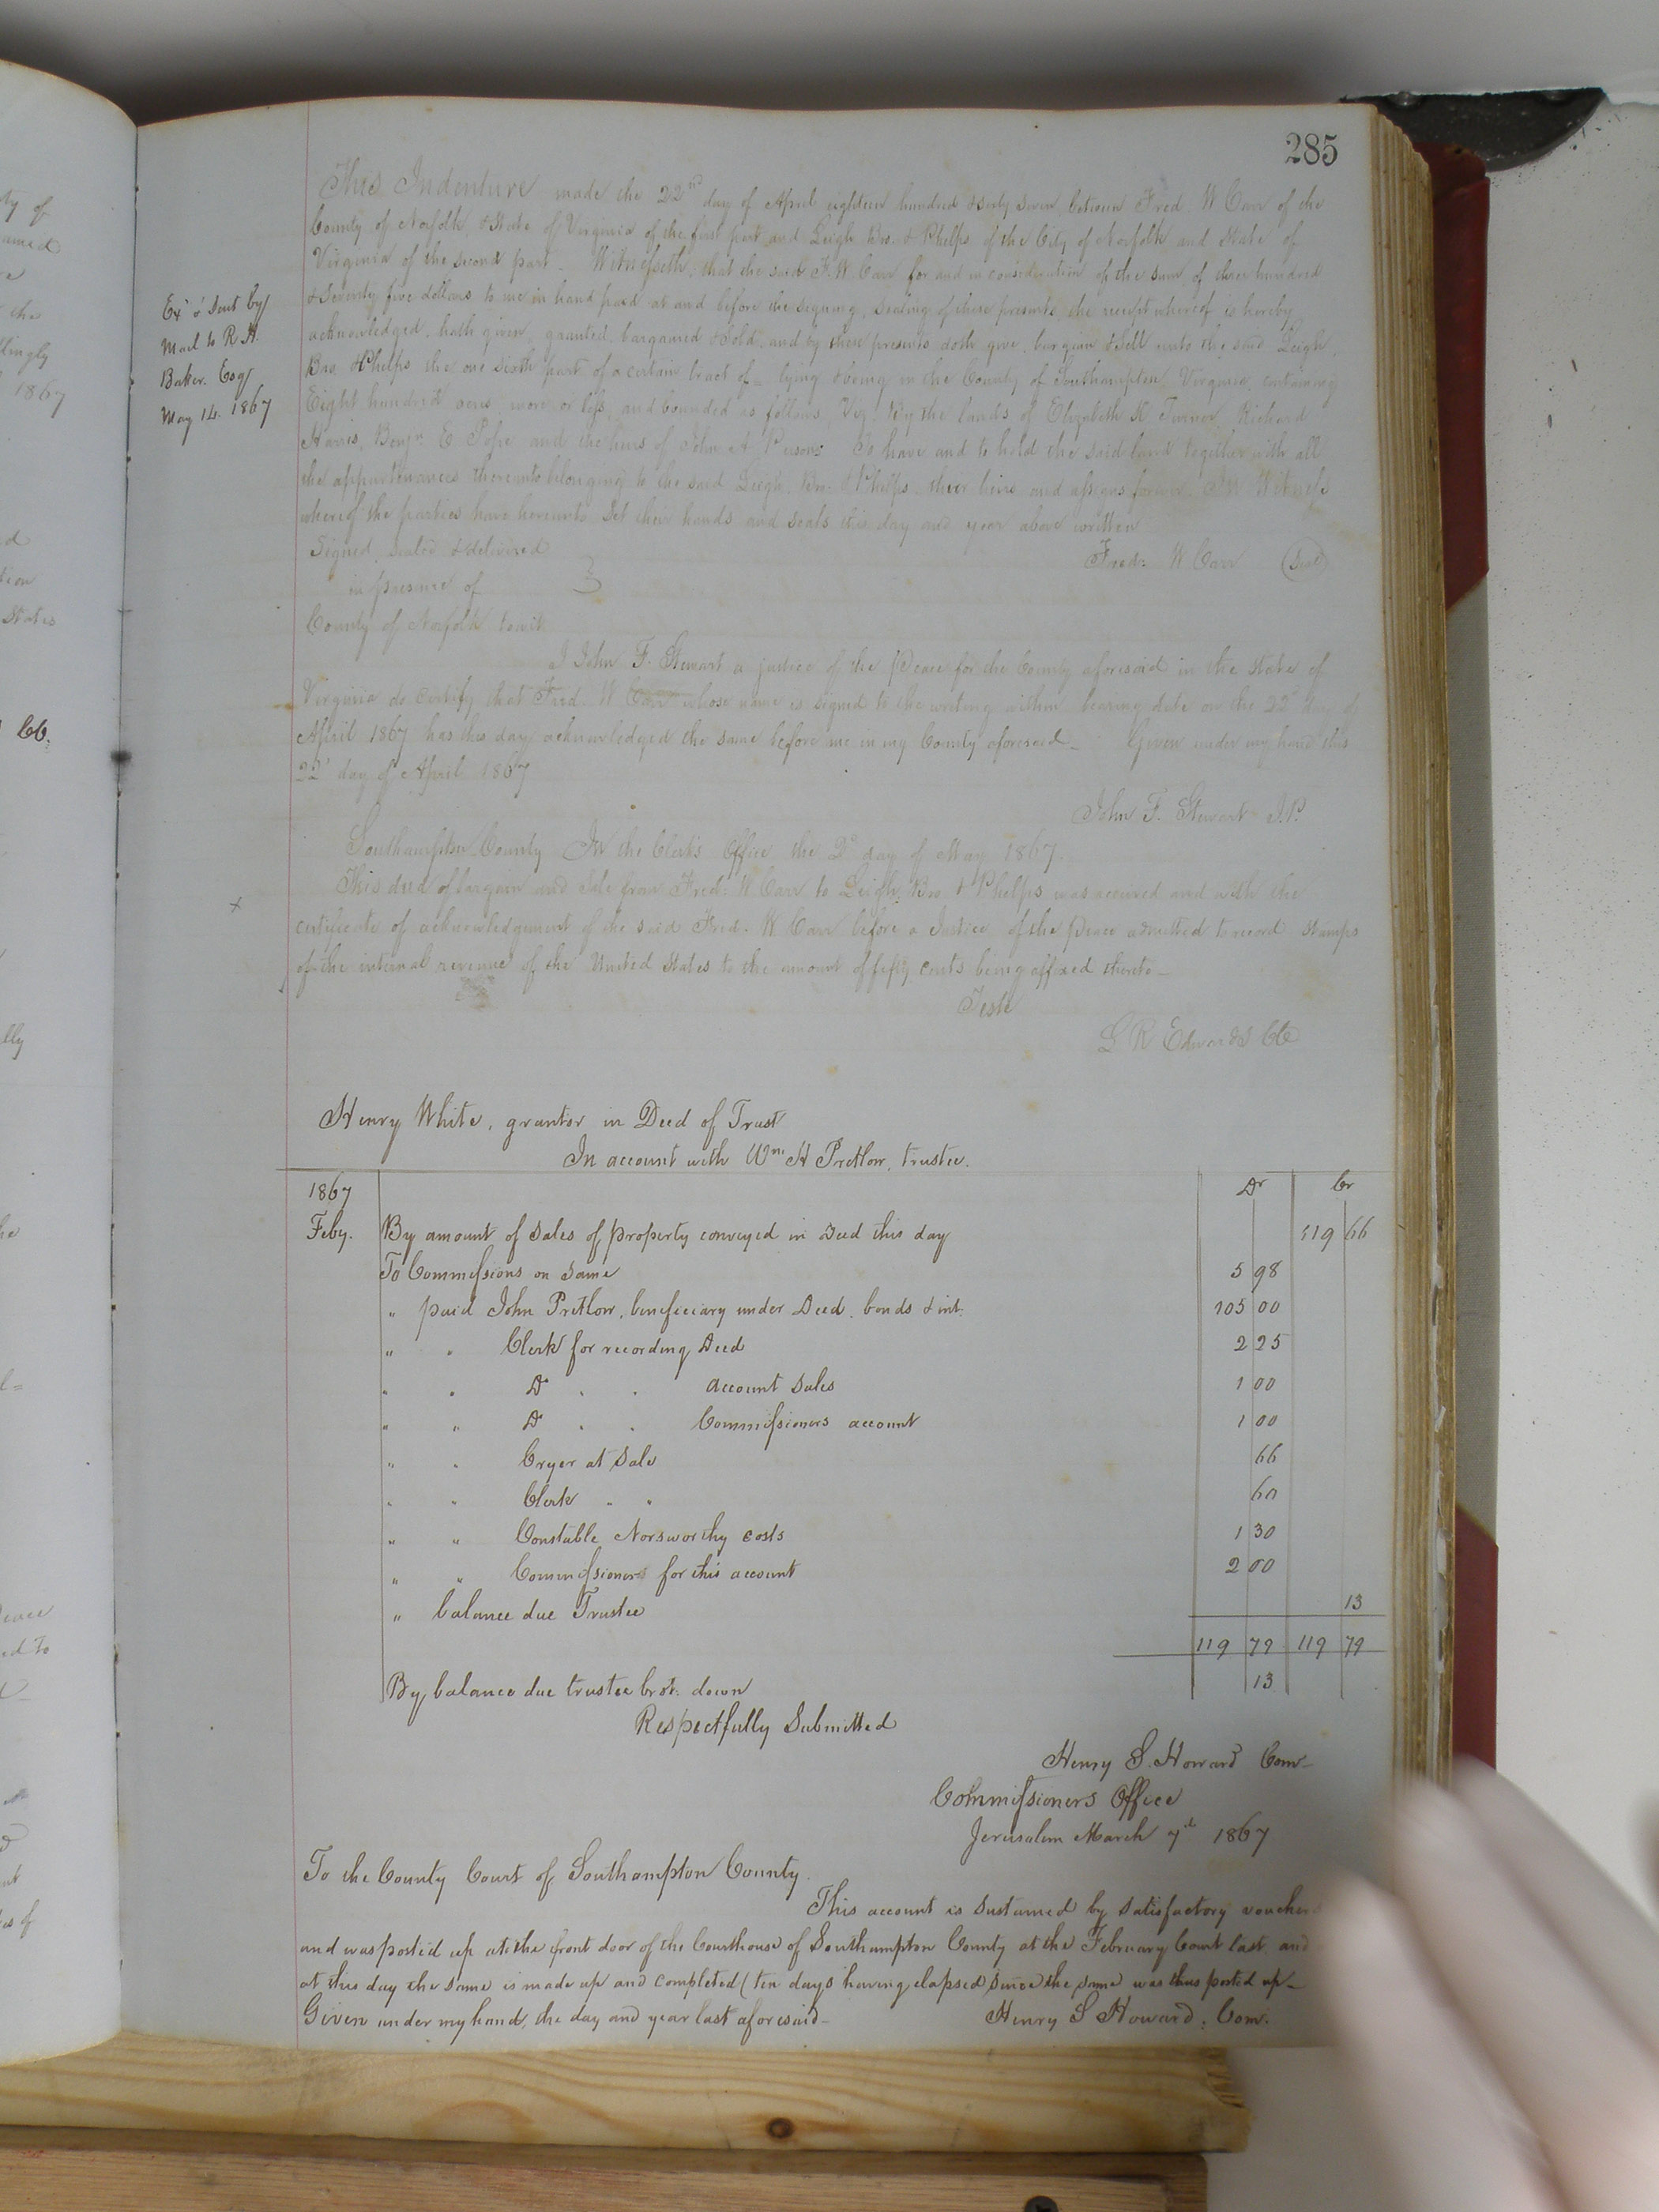 285
This Indenture made the 22nd day of April eighteen hundred & sixty seven between Fred. W Carr of the
County of Norfolk & State of Virginia of the first part and Leigh Bro. & Phelps of the City of Norfolk and State of
Virginia of the second part. Witnesseth, that the said F. W. Carr for and in consideration of the sum of three hundred
& seventy five dollars to me in hand paid at and before the signing, sealing of these presents, the receipt whereof is hereby
acknowledged, hath given, granted, bargained & sold, and by these presents doth give, bargain & sell unto the said Leigh,
Bro. & Phelps the one sixth part of a certain tract of = lying & being in the County of Southampton, Virginia, containing
Eight hundred acres, more or less, and bounded as follows, Viz: By the lands of Elizabeth K Turner, Richard
Harris, Benjn. E. Pope and the heirs of John A Persons To have and to hold the said land together with all
the appurtenances thereunto belonging to the said Leigh, Bro. & Phelps, their heirs and assigns forever. In Witness
whereof the parties have hereunto set their hands and seals this day and year above written
Signed, sealed & delivered
Fred: W Carr (Seal)
in presence of
County of Norfolk towit
I John F. Stewart a justice of the Peace for the County aforesaid in the State of
Virginia do certify that Fred. W Carr whose name is signed to the writing within bearing date on the 22d day of
April 1867 has this day acknowledged the same before me in my County aforesaid_ Given under my hand this
22d day of April 1867
John F. Stewart J.P.
Southampton County In the Clerks Office the 2d day of May 1867.
This deed of bargain and sale from Fred: W Carr to Leigh, Bro. & Phelps was received and with the
certificate of acknowledgment of the said Fred. W. Carr before a Justice of the Peace admitted to record stamps
of the internal revenue of the United States to the amount of fifty cents being affixed thereto_
Teste
L R Edwards Clk
Exd & sent by
Mail to R. H.
Baker. Esq
May 14. 1867
x
Henry White, grantor in Deed of Trust
In account with Wm H Pretlow, trustee.
1867 Dr Cr
Feby. By amount of sales of property conveyed in Deed this day 119 66
To Commissions on same 5 98
" paid John Pretlow, beneficiary under Deed. bonds & int. 105 00
" " Clerk for recording Deed 2 25
" " Do " " account sales 1 00
" " Do " " Commissioners account 1 00
" " Cryer at Sale 66
" " Clerk " " 60
" " Constable Norsworthy costs 1 30
" " Commissioners for this account 2 00
" balance due Trustee 13
119 79 119 79
By balance due trustee brot. down 13
Respectfully Submitted
Henry S. Howard Com_
Commissioners Office
Jerusalem March 7th 1867
To the County Court of Southampton County.
This account is sustained by satisfactory vouchers
and was posted up at the front door of the Courthouse of Southampton County at the February Court last and
at this day the same is made up and completed (ten days having elapsed) since the same was thus posted up_
Given under my hand, the day and year last aforesaid_ Henry S Howard, Com.